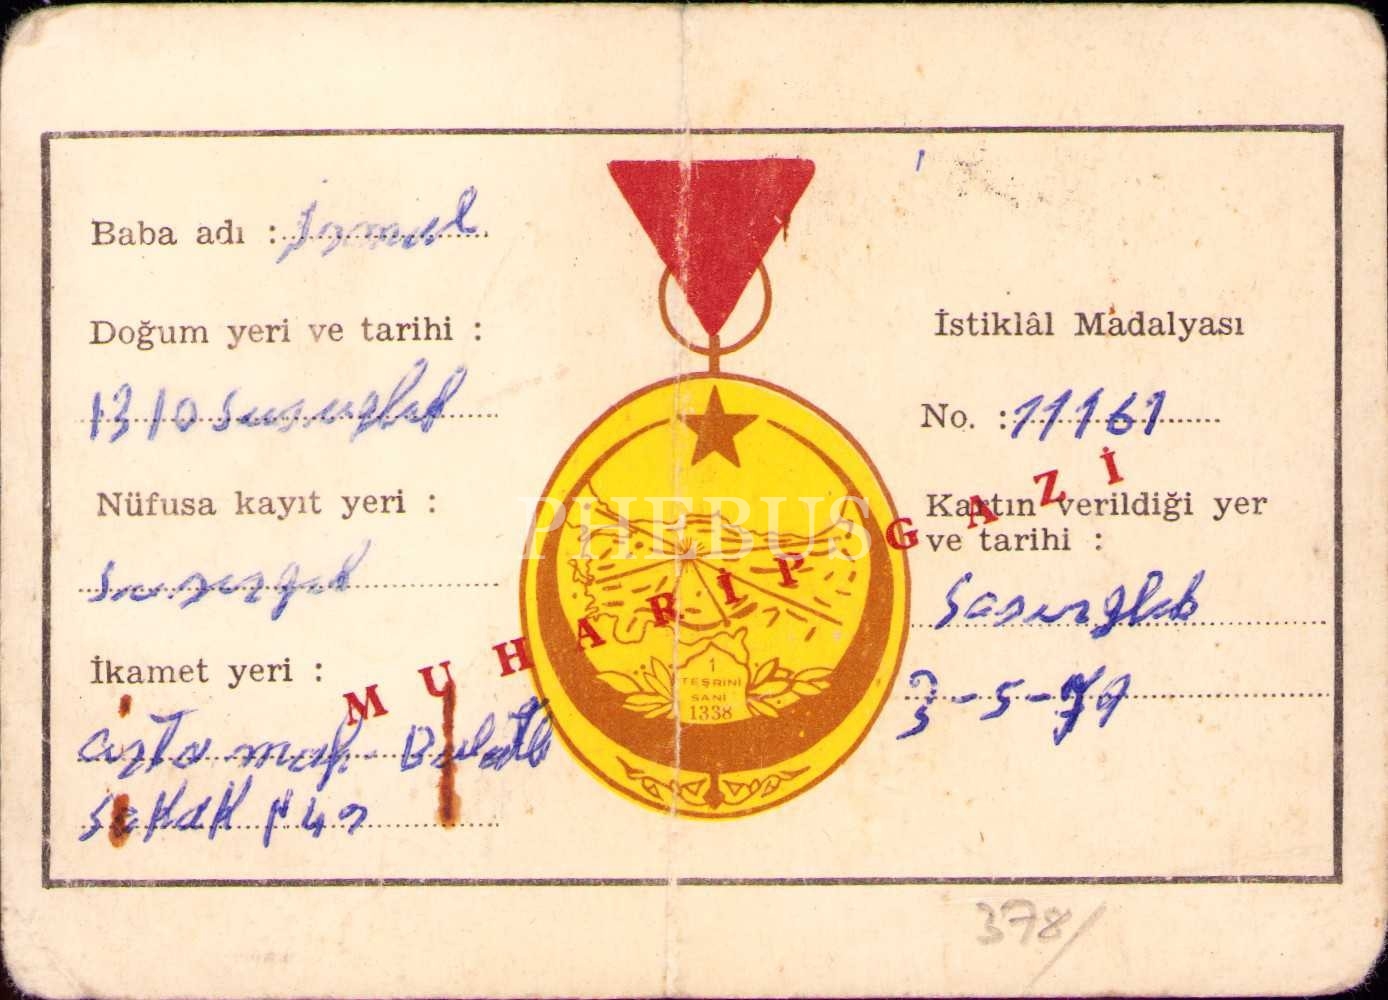 Baba adı : İsmail
Doğum yeri ve tarihi :
1310 Susurluk
Nüfusa kayıt yeri :
İkamet yeri :
orta mah.
sokak 
İstiklâl Madalyası
No. : 11161
Kartın verildiği yer
ve tarihi :
3-5-
MUHARİP GAZİ
1
TEŞRİNİ
SANİ
1338
PHEBUS
378/